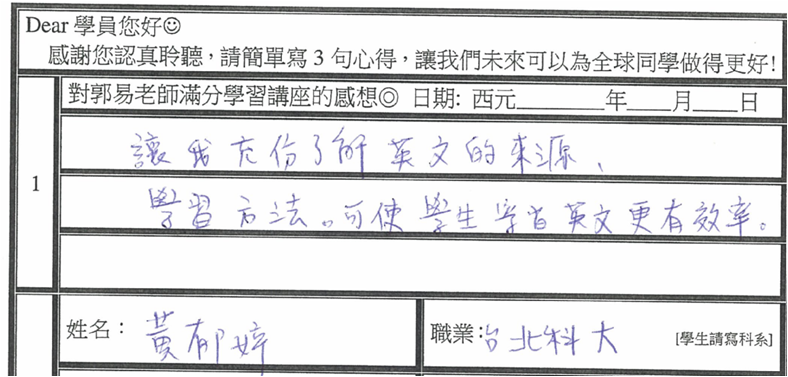 Dear 學員您好☺
感謝您認真聆聽，請簡單寫 3 句心得，讓我們未來可以為全球同學做得更好!
1
對郭易老師滿分學習講座的感想◎ 日期: 西元________年____月____日
讓我充份了解英文的來源、
學習方法。可使學生学習英文更有效率。
姓名：黃郁婷
職業：台北科大 [學生請寫科系]